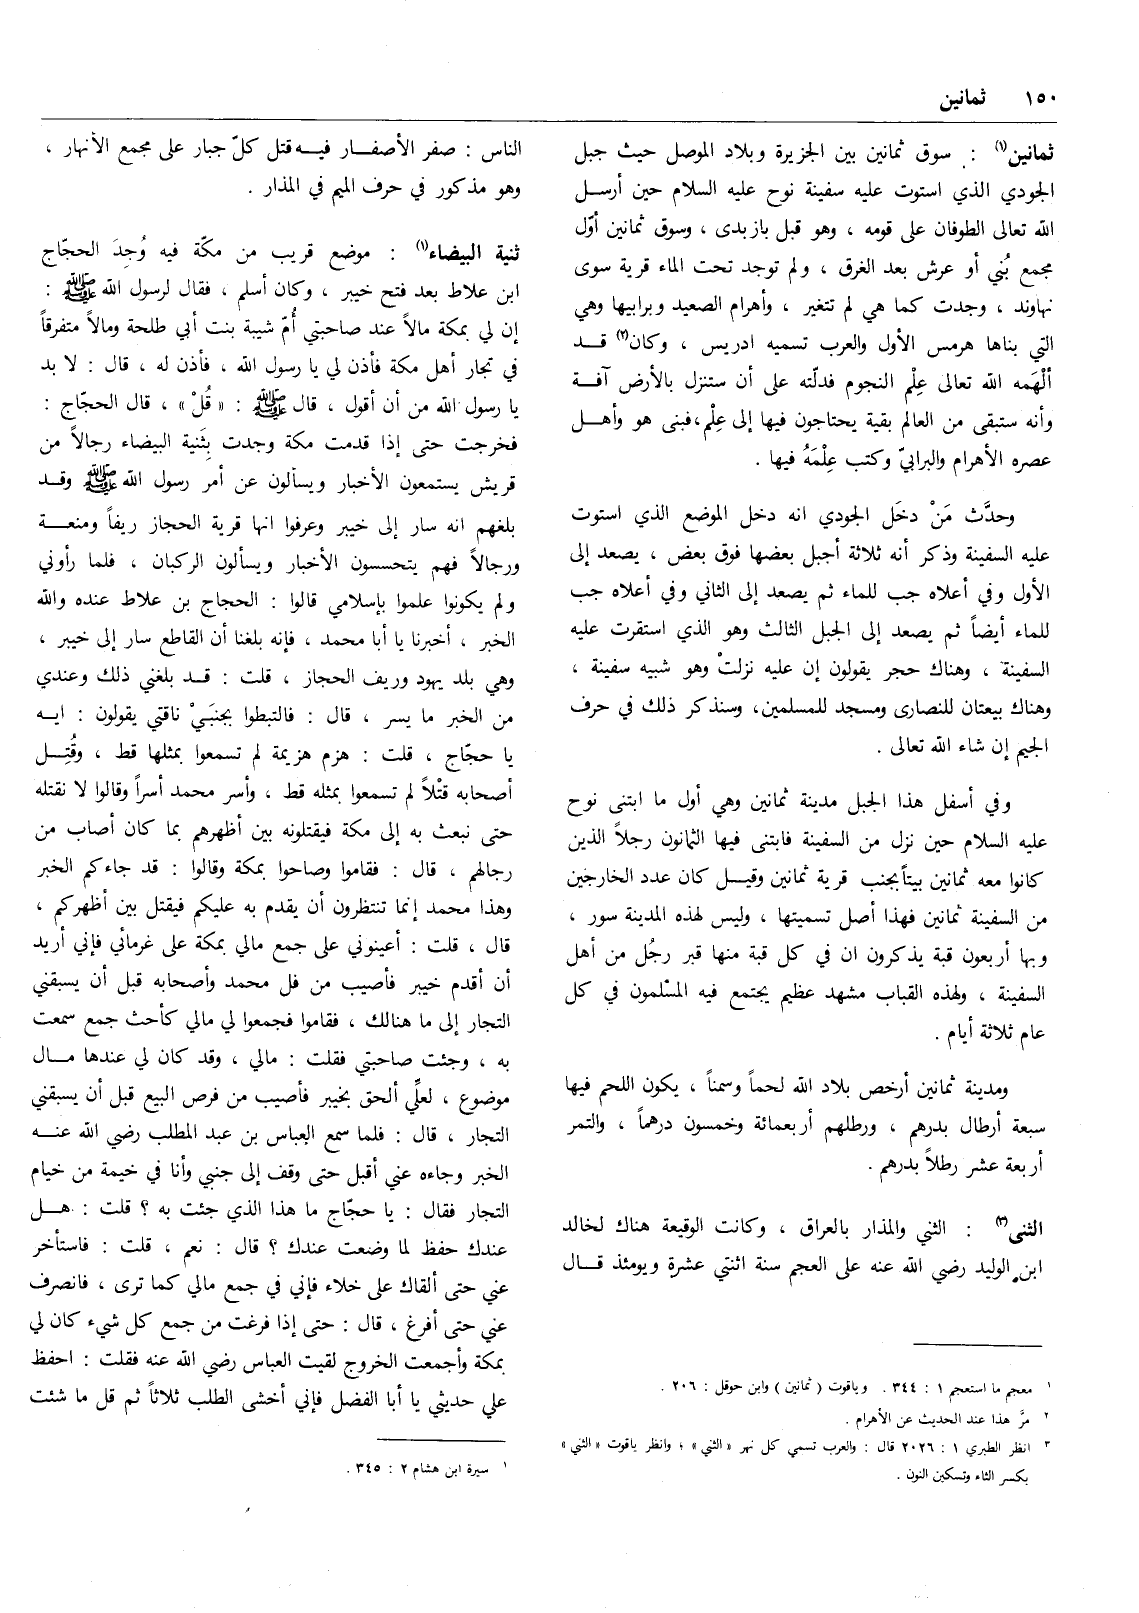 ١٥٠ ثمانين
ثمانين(١) : سوق ثمانين بين الجزيرة وبلاد الموصل حيث جبل
الجودي الذي استوت عليه سفينة نوح عليه السلام حين أرسل
الله تعالى الطوفان على قومه ، وهو قبل بازبدى ، وسوق ثمانين أوّل
مجمع بُني أو عرش بعد الغرق ، ولم توجد تحت الماء قرية سوى
نهاوند ، وجدت كما هي لم تتغير ، وأهرام الصعيد وبرابيها وهي
التي بناها هرمس الأول والعرب تسميه ادريس ، وكان(٢) قد
ألْهَمه الله تعالى عِلْم النجوم فدلّته على أن ستنزل بالأرض آفة
وأنه ستبقى من العالم بقية يحتاجون فيها إلى عِلْم،فبنى هو وأهل
عصره الأهرام والبرابيّ وكتب عِلْمَهُ فيها .
وحدَّث مَنْ دخَل الجودي انه دخل الموضع الذي استوت
عليه السفينة وذكر أنه ثلاثة أجبل بعضها فوق بعض ، يصعد إلى
الأول وفي أعلاه جب للماء ثم يصعد إلى الثاني وفي أعلاه جب
للماء أيضاً ثم يصعد إلى الجبل الثالث وهو الذي استقرت عليه
السفينة ، وهناك حجر يقولون إن عليه نزلتْ وهو شبيه سفينة ،
وهناك بيعتان للنصارى ومسجد للمسلمين، وسنذكر ذلك في حرف
الجيم إن شاء الله تعالى .
وفي أسفل هذا الجبل مدينة ثمانين وهي أول ما ابتنى نوح
عليه السلام حين نزل من السفينة فابتنى فيها الثمانون رجلاً الذين
كانوا معه ثمانين بيتاً بجنب قرية ثمانين وقيل كان عدد الخارجين
من السفينة ثمانين فهذا أصل تسميتها ، وليس لهذه المدينة سور ،
وبها أربعون قبة يذكرون ان في كل قبة منها قبر رجُل من أهل
السفينة ، ولهذه القباب مشهد عظيم يجتمع فيه المسْلمون في كل
عام ثلاثة أيام .
ومدينة ثمانين أرخص بلاد الله لحماً وسمناً ، يكون اللحم فيها
سبعة أرطال بدرهم ، ورطلهم أربعمائة وخمسون درهماً ، والتمر
أربعة عشر رطلاً بدرهم .
الثني(٣) : الثني والمذار بالعراق ، وكانت الوقيعة هناك لخالد
ابن الوليد رضي الله عنه على العجم سنة اثنتي عشرة ويومئذ قال
١ معجم ما استعجم ١ : ٣٤٤ . وياقوت ( ثمانين ) وابن حوقل : ٢٠٦ .
٢ مرَّ هذا عند الحديث عن الأهرام .
٣ انظر الطبري ١ : ٢٠٢٦ قال : والعرب تسمي كل نهر « الثني » ؛ وانظر ياقوت « الثني »
بكسر الثاء وتسكين النون .
الناس : صفر الأصفار فيه قتل كلّ جبار على مجمع الأنهار ،
وهو مذكور في حرف الميم في المذار .
ثنية البيضاء(١) : موضع قريب من مكّة فيه وُجِدَ الحجّاج
ابن علاط بعد فتح خيبر ، وكان أسلم ، فقال لرسول الله ﷺ :
إن لي بمكة مالاً عند صاحبتي أُمّ شيبة بنت أبي طلحة ومالاً متفرقاً
في تجار أهل مكة فأذن لي يا رسول الله ، فأذن له ، قال : لا بد
يا رسول الله من أن أقول ، قال ﷺ : « قُلْ » ، قال الحجّاج :
فخرجت حتى إذا قدمت مكة وجدت بِثَنية البيضاء رجالاً من
قريش يستمعون الأخبار ويسألون عن أمر رسول الله ﷺ وقد
بلغهم انه سار إلى خيبر وعرفوا انها قرية الحجاز ريفاً ومنعة
ورجالاً فهم يتحسسون الأخبار ويسألون الركبان ، فلما رأوني
ولم يكونوا علموا بإسلامي قالوا : الحجاج بن علاط عنده والله
الخبر ، أخبرنا يا أبا محمد ، فإنه بلغنا أن القاطع سار إلى خيبر ،
وهي بلد يهود وريف الحجاز ، قلت : قد بلغني ذلك وعندي
من الخبر ما يسر ، قال : فالتبطوا بجنبَيْ ناقتي يقولون : ايه
يا حجّاج ، قلت : هزم هزيمة لم تسمعوا بمثلها قط ، وقُتِل
أصحابه قتْلاً لم تسمعوا بمثله قط ، وأسر محمد أسراً وقالوا لا نقتله
حتى نبعث به إلى مكة فيقتلونه بين أظهرهم بما كان أصاب من
رجالهم ، قال : فقاموا وصاحوا بمكة وقالوا : قد جاءكم الخبر
وهذا محمد إنما تنتظرون أن يقدم به عليكم فيقتل بين أظهركم ،
قال ، قلت : أعينوني على جمع مالي بمكة على غرمائي فإني أريد
أن أقدم خيبر فأصيب من فل محمد وأصحابه قبل أن يسبقني
التجار إلى ما هنالك ، فقاموا فجمعوا لي مالي كأحث جمع سمعت
به ، وجئت صاحبتي فقلت : مالي ، وقد كان لي عندها مال
موضوع ، لعلِّي ألحق بخيبر فأصيب من فرص البيع قبل أن يسبقني
التجار ، قال : فلما سمع العباس بن عبد المطلب رضي الله عنه
الخبر وجاءه عني أقبل حتى وقف إلى جنبي وأنا في خيمة من خيام
التجار فقال : يا حجّاج ما هذا الذي جئت به ؟ قلت : هل
عندك حفظ لما وضعت عندك ؟ قال : نعم ، قلت : فاستأخر
عني حتى ألقاك على خلاء فإني في جمع مالي كما ترى ، فانصرف
عني حتى أفرغ ، قال : حتى إذا فرغت من جمع كل شيء كان لي
بمكة وأجمعت الخروج لقيت العباس رضي الله عنه فقلت : احفظ
علي حديثي يا أبا الفضل فإني أخشى الطلب ثلاثاً ثم قل ما شئت
١ سيرة ابن هشام ٢ : ٣٤٥ .